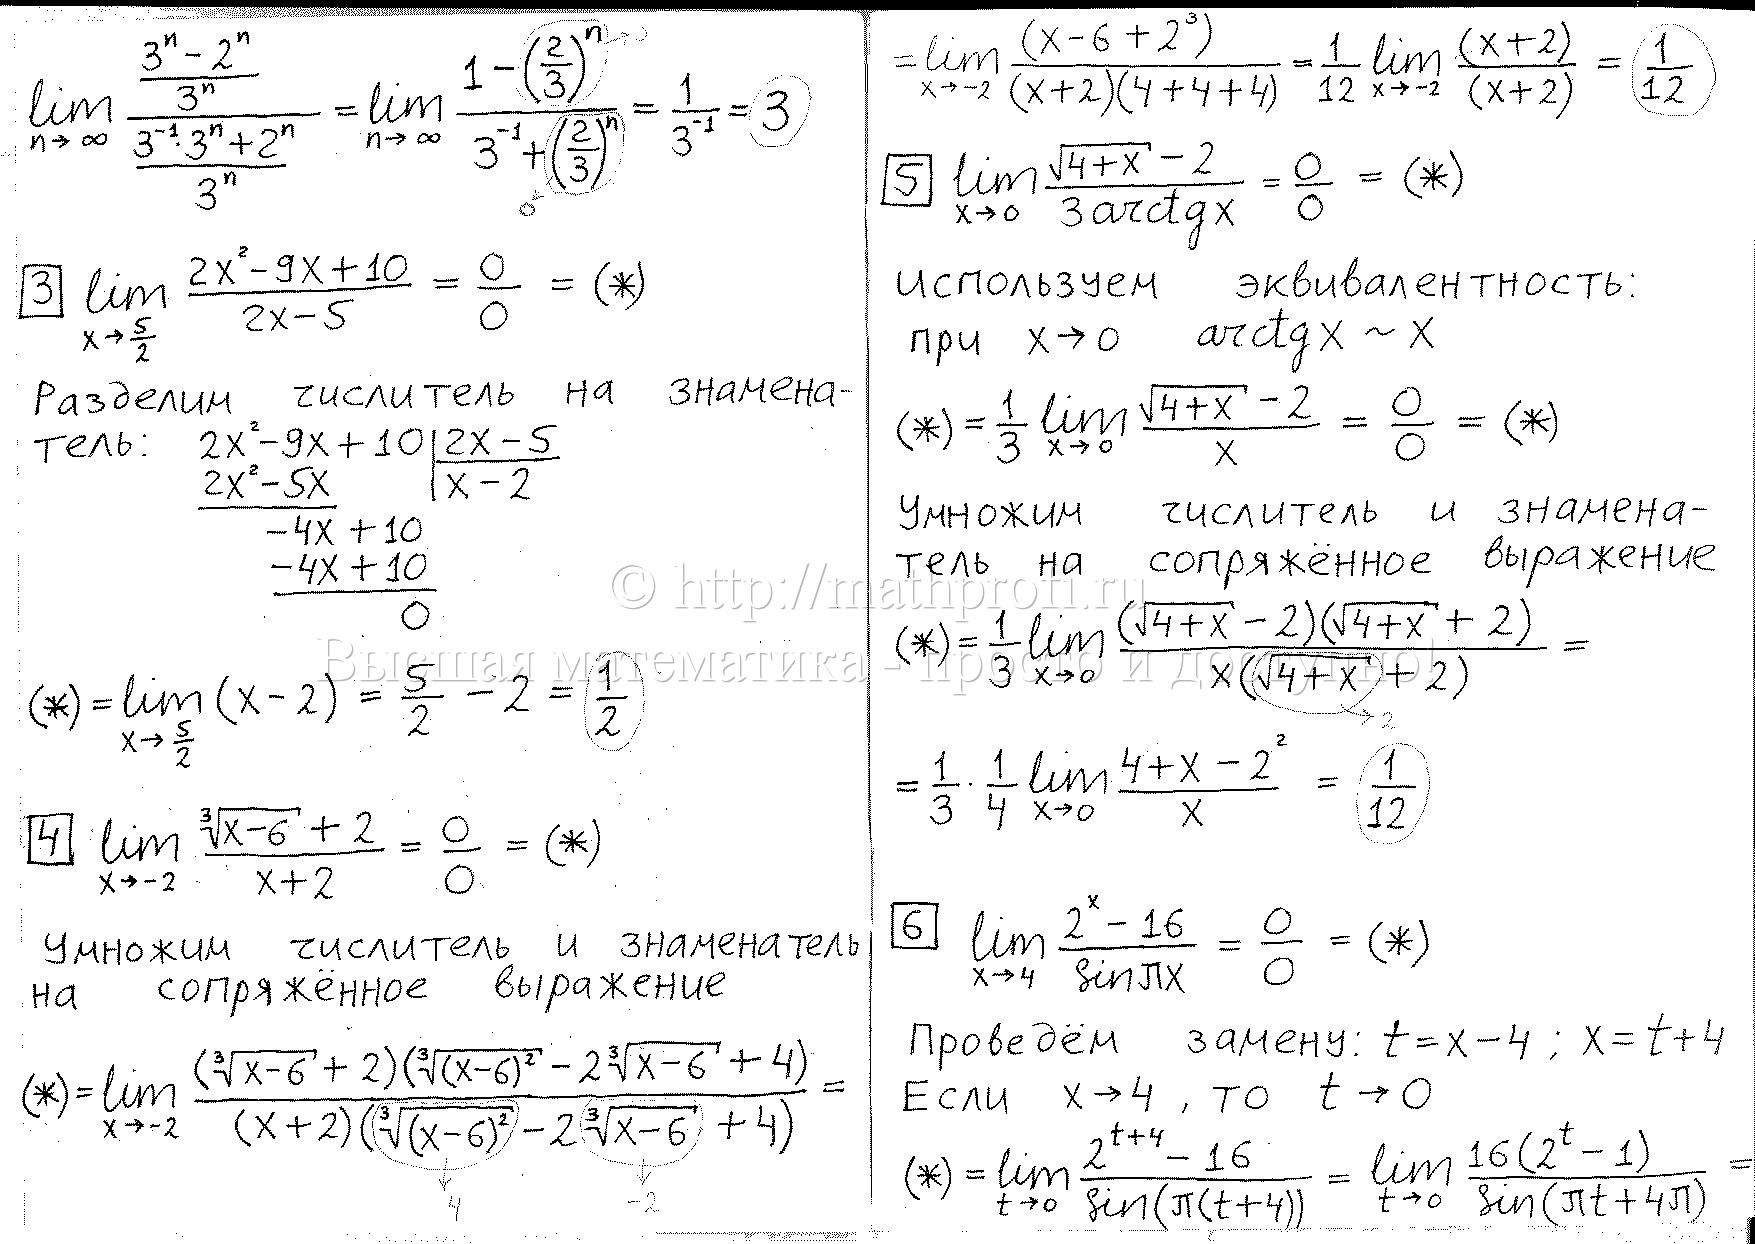 lim_{n→∞} ((3ⁿ − 2ⁿ)/3ⁿ) / ((3⁻¹·3ⁿ + 2ⁿ)/3ⁿ) = lim_{n→∞} (1 − (2/3)ⁿ)/(3⁻¹ + (2/3)ⁿ) = 1/3⁻¹ = 3
→0
0
3 lim_{x→5/2} (2x² − 9x + 10)/(2x − 5) = 0/0 = (*)
Разделим числитель на знамена-
тель: 2x² − 9x + 10 | 2x − 5
2x² − 5x | x − 2
−4x + 10
−4x + 10
0
(*) = lim_{x→5/2} (x − 2) = 5/2 − 2 = 1/2
4 lim_{x→−2} (∛(x−6) + 2)/(x + 2) = 0/0 = (*)
Умножим числитель и знаменатель
на сопряжённое выражение
(*) = lim_{x→−2} ((∛(x−6) + 2)(∛(x−6)² − 2∛(x−6) + 4))/((x+2)(∛(x−6)² − 2∛(x−6) + 4)) =
→4 →−2
= lim_{x→−2} (x − 6 + 2³)/((x+2)(4+4+4)) = 1/12 lim_{x→−2} (x+2)/(x+2) = 1/12
5 lim_{x→0} (√(4+x) − 2)/(3arctgx) = 0/0 = (*)
Используем эквивалентность:
при x→0 arctgx ~ x
(*) = 1/3 lim_{x→0} (√(4+x) − 2)/x = 0/0 = (*)
Умножим числитель и знамена-
тель на сопряжённое выражение
(*) = 1/3 lim_{x→0} ((√(4+x) − 2)(√(4+x) + 2))/(x(√(4+x) + 2)) =
→2
= 1/3 · 1/4 lim_{x→0} (4 + x − 2²)/x = 1/12
6 lim_{x→4} (2ˣ − 16)/(sinπx) = 0/0 = (*)
Проведём замену: t = x − 4 ; x = t + 4
Если x→4 , то t→0
(*) = lim_{t→0} (2^{t+4} − 16)/(sin(π(t+4))) = lim_{t→0} (16(2ᵗ − 1))/(sin(πt + 4π)) =
© http://mathprofi.ru
Высшая математика - просто и доступно!